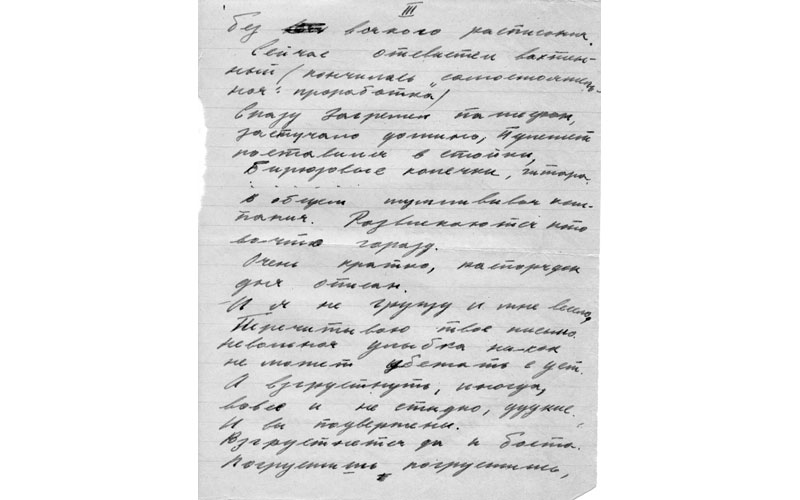 III
без всякого расписания.
Сейчас отсвистел вахтен-
ный (кончилась "самостоятель-
ная" проработка)
Сразу загремел патефон,
застучало домино,
поставился в стойки,
Бирюзовые колечки, гитара.
. . . . . .
в общем шумливая ком-
пания. Развлекаются кто
во что горазд.
Очень кратко, распорядок
дня описан.
И я не грущу и мне весело,
Перечитываю твое письмо.
невольная улыбка никак
не может убежать с уст.
А взгрустнуть, иногда,
вовсе и не стыдно,
И вы подвержены.
Взгрустнется да и
Погрустишь, погрустишь,